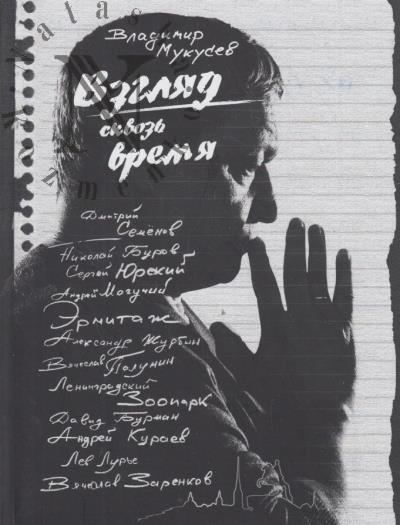 Владимир
Мукусев
Взгляд
сквозь
время
Дмитрий
Семёнов
Николай Буров
Сергей Юрский
Андрей Могучий
Эрмитаж
Александр Журбин
Вячеслав Полунин
Ленинградский
Зоопарк
Давид Бурман
Андрей Кураев
Лев Лурье
Вячеслав Заренков